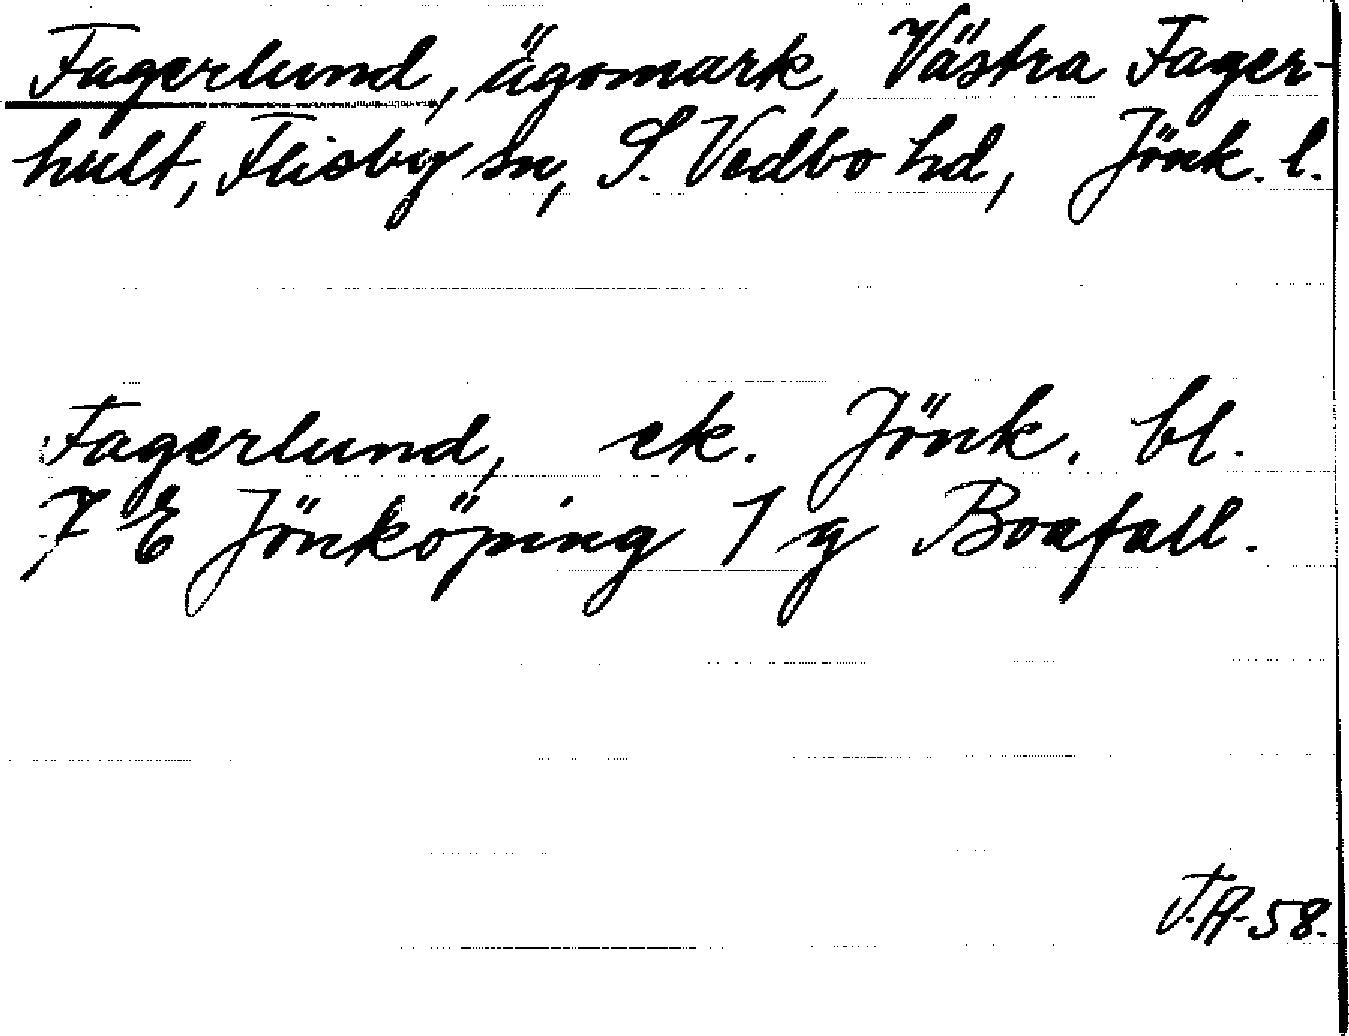 Fagerlund, ägomark, Västra Fager-
hult, Flisby sn, S. Vedbo hd, Jönk. l.
Fagerlund, ek. Jönk. bl.
7 E Jönköping 7 g Boafall.
F.A-58.